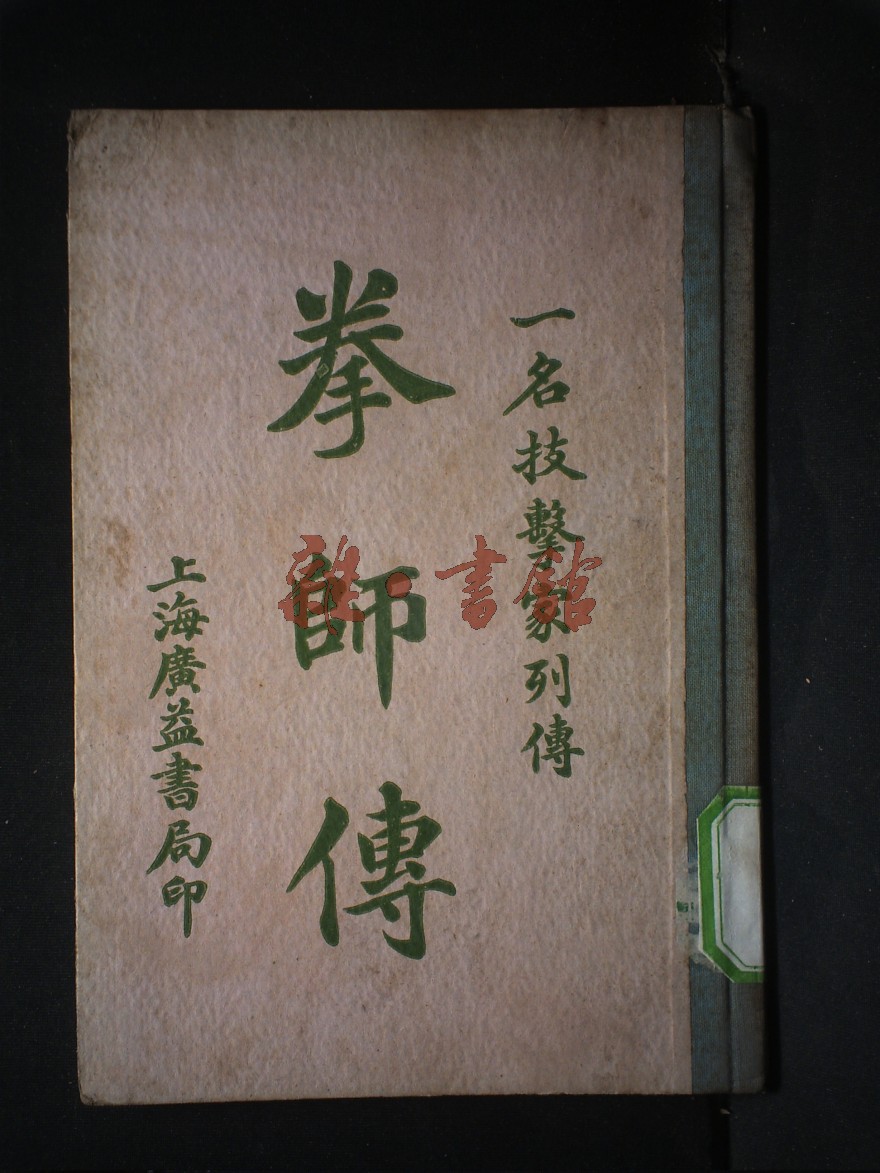 一名技擊家列傳
拳師傳
上海廣益書局印
雜·書館